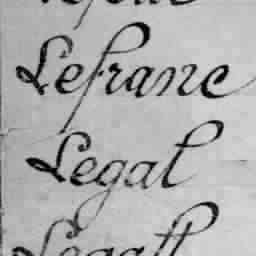 Lefranc
Legal
Legall